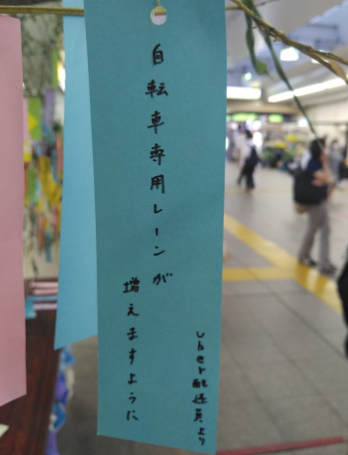 自転車専用レーンが
増えますように
Uber配達員より